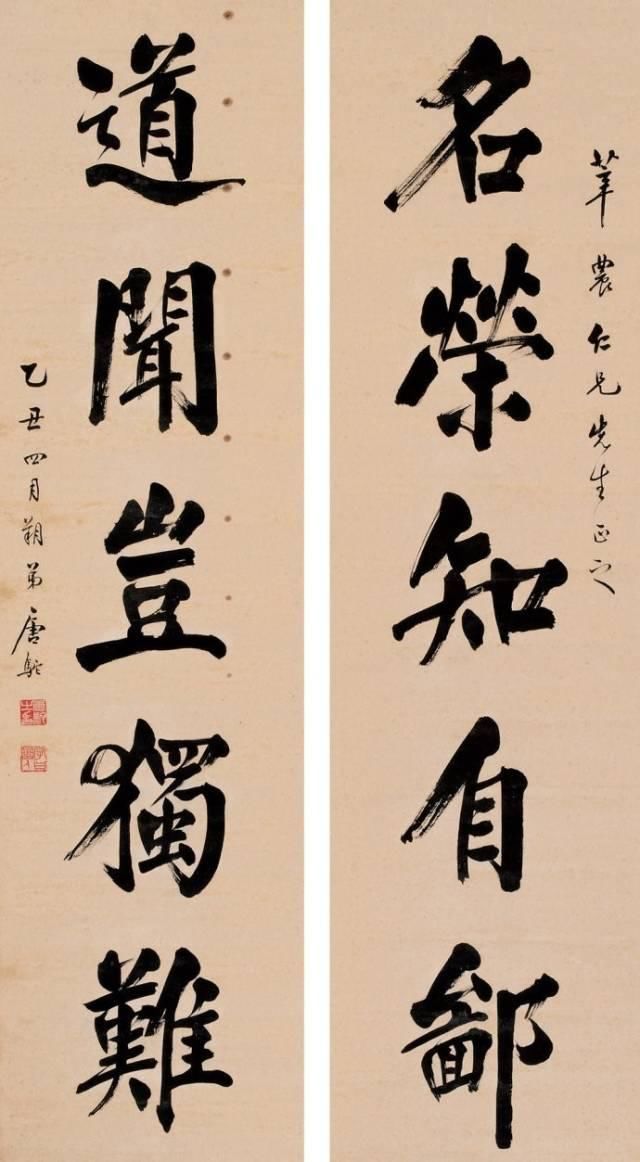 農仁兄先生正之
名榮知自鄙
道聞豈獨難
乙丑四月朔弟唐駝